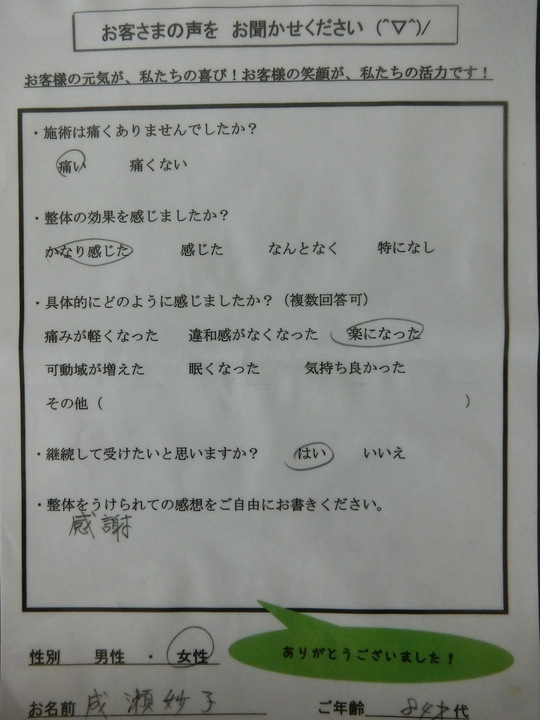 お客さまの声を お聞かせください (^▽^)/
お客様の元気が、私たちの喜び！お客様の笑顔が、私たちの活力です！
・施術は痛くありませんでしたか？
痛い 痛くない
・整体の効果を感じましたか？
かなり感じた 感じた なんとなく 特になし
・具体的にどのように感じましたか？（複数回答可）
痛みが軽くなった 違和感がなくなった 楽になった
可動域が増えた 眠くなった 気持ち良かった
その他（ ）
・継続して受けたいと思いますか？ はい いいえ
・整体をうけられての感想をご自由にお書きください。
感謝
性別 男性 ・ 女性
ありがとうございました！
お名前 成瀬妙子 ご年齢 84才代